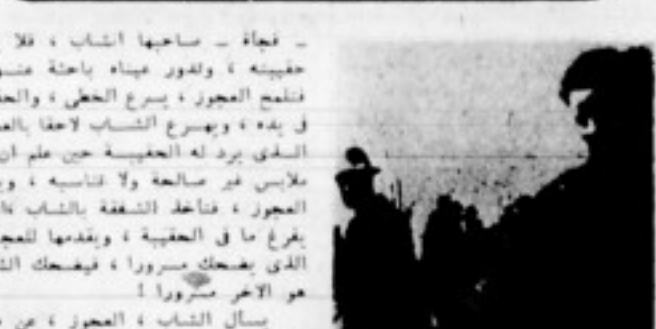 ـ فجأة ـ صاحبها الشاب ، فلا
حقيبته ، وتدور عيناه باحثة عنـ
فتلمح العجوز ، يسرع الخطى ، والحقـ
فى يده ، ويهـرع الشـاب لاحقا بالعـ
الـذى يرد له الحقيبـة حين علم ان
ملابس غير صالحة ولا تناسبه ، ويـ
العجوز ، فتأخذ الشفقة بالشاب
يفرغ ما فى الحقيبة ، ويقدمها للعجـ
الذى يضحك مسرورا ، فيضحك الشـ
هو الاخر مسرورا !
يسأل الشاب ، العجوز ، عن